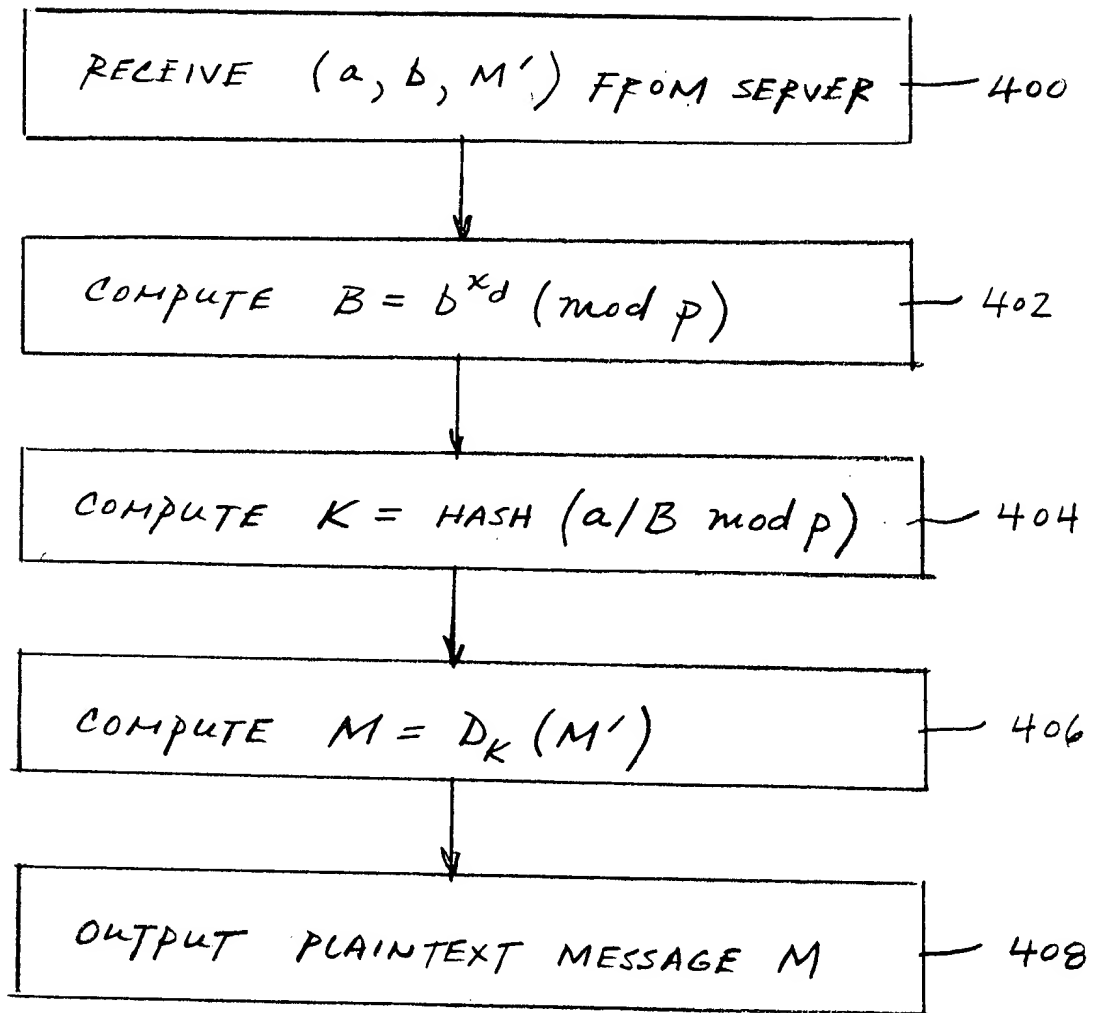 RECEIVE (a, b, M′) FROM SERVER 400
COMPUTE B = b^x_d (mod p) 402
COMPUTE K = HASH (a/B mod p) 404
COMPUTE M = D_K (M′) 406
OUTPUT PLAINTEXT MESSAGE M 408